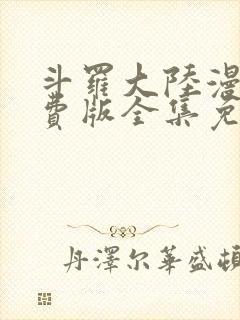 斗羅大陸漫
費版全集免
丹澤尔華盛頓